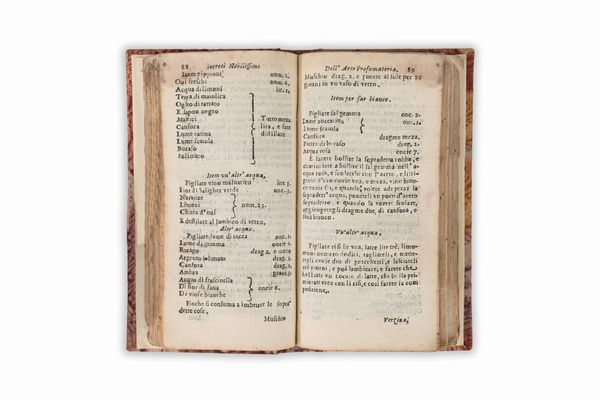 88 Secreti Nobilissimi
Item pipponi, num. 1.
Oui freschi num. 6.
Acqua di limoni lit. 1.
Terra di maiolica
Oglio di tartaro
E sapon negro
Mastici Tutto meza
Canfora lira, e fate
Lume catina distillare
Lume scaiola
Boraso
Solimato
Item vn'altr'acqua.
Pigliate vino maluatico lire 3.
Fior di Saligher verde onc. 3.
Naranze
Limoni num. 25.
Chiara d'oui
E destilate al lambico di vetro.
Altr'acqua.
Pigliate lume di rocca onc. 1.
Lume di gemma oncie 1.
Borago drag. 2. e mezo
Argento solimato drag. 1.
Canfora drag. 1.
Ambra grani
Acqua di frascinella
Di fior di faua oncie 6.
Di viole bianche
Finche si consuma a imbeuer le sopra
dette cose.
Muschio
Dell'Arte Profumatoria. 89
Muschio drag. 2. e ponete al sole per 20
giorni in vn vaso di vetro.
Item per far bianco.
Pigliate sal gemma onc. 2.
Lume zuccarina onc. 1.
Lume scaiola
Canfora dragme meza.
Pietra di boraso drag. 2.
Acqua rosa oncie 7.
E farete bollir la sopradetta robba, e
cominciate a bollire il sal gemma nell'a-
cqua rosa, e scolatelo con
d'oncie vna, e meza, vino bian
co oncie sei, e quando volete adoperar la
sopradetta acqua, poneteli vn poco d'aceto
sopradetto, e quando la vorrete scolare,
aggiungetegli dragme due, di canfora, e
sarà bianco.
Vn'altr'acqua.
Pigliate risi lir vna, latte lire trè, limo-
ni num ero dodici, tagliateli, e mette-
tegli oncie due di e lasciateli
trè giorni, e poi lambicate, e farete che
habbiate vn bocale di latte, che bolla pri-
ma con li risi, e così farete la com
positione.
Verzino,